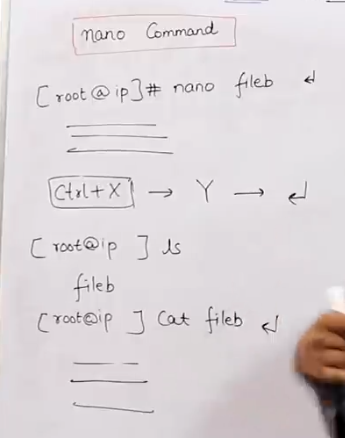 nano Command
[root@ip]# nano fileb ↵
Ctrl+X → Y → ↵
[root@ip ] ls
fileb
[root@ip ] Cat fileb ↵